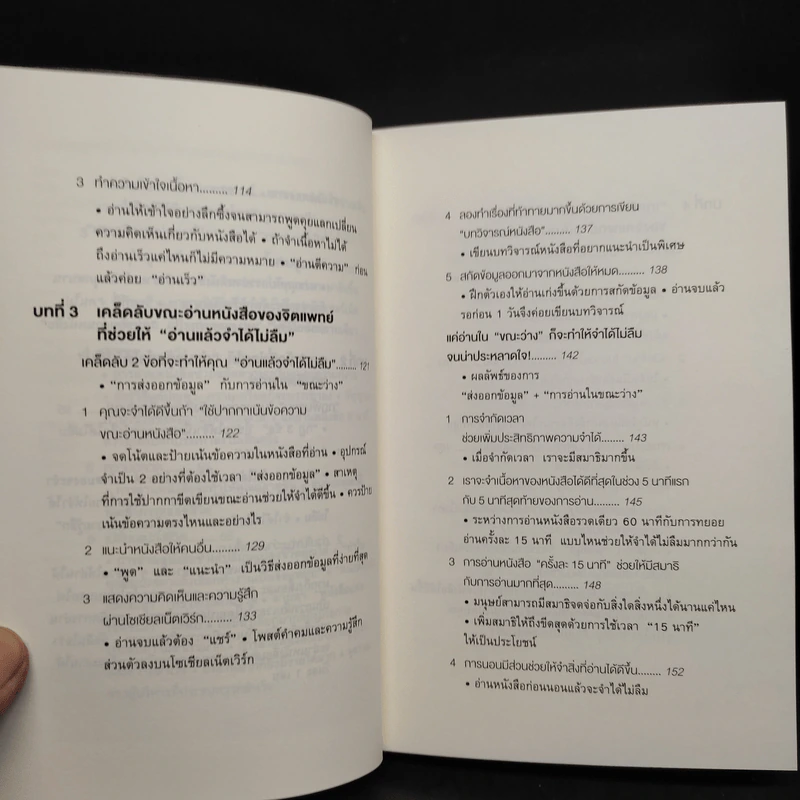 3 ทำความเข้าใจเนื้อหา......... 114
• อ่านให้เข้าใจอย่างลึกซึ้งจนสามารถพูดคุยแลกเปลี่ยน
ความคิดเห็นเกี่ยวกับหนังสือได้ • ถ้าจำเนื้อหาไม่ได้
ถึงอ่านเร็วแค่ไหนก็ไม่มีความหมาย • “อ่านตีความ” ก่อน
แล้วค่อย “อ่านเร็ว”
บทที่ 3 เคล็ดลับขณะอ่านหนังสือของจิตแพทย์
ที่ช่วยให้ “อ่านแล้วจำได้ไม่ลืม”
เคล็ดลับ 2 ข้อที่จะทำให้คุณ “อ่านแล้วจำได้ไม่ลืม”......... 121
• “การส่งออกข้อมูล” กับการอ่านใน “ขณะว่าง”
1 คุณจะจำได้ดีขึ้นถ้า “ใช้ปากกาเน้นข้อความ
ขณะอ่านหนังสือ”......... 122
• จดโน้ตและป้ายเน้นข้อความในหนังสือที่อ่าน • อุปกรณ์
จำเป็น 2 อย่างที่ต้องใช้เวลา “ส่งออกข้อมูล” • สาเหตุ
ที่การใช้ปากกาขีดเขียนขณะอ่านช่วยให้จำได้ดีขึ้น • ควรป้าย
เน้นข้อความตรงไหนและอย่างไร
2 แนะนำหนังสือให้คนอื่น......... 129
• “พูด” และ “แนะนำ” เป็นวิธีส่งออกข้อมูลที่ง่ายที่สุด
3 แสดงความคิดเห็นและความรู้สึก
ผ่านโซเชียลเน็ตเวิร์ก......... 133
• อ่านจบแล้วต้อง “แชร์” • โพสต์คำคมและความรู้สึก
ส่วนตัวลงบนโซเชียลเน็ตเวิร์ก
4 ลองทำเรื่องที่ท้าทายมากขึ้นด้วยการเขียน
“บทวิจารณ์หนังสือ”......... 137
• เขียนบทวิจารณ์หนังสือที่อยากแนะนำเป็นพิเศษ
5 สกัดข้อมูลออกมาจากหนังสือให้หมด......... 138
• ฝึกตัวเองให้อ่านเก่งขึ้นด้วยการสกัดข้อมูล • อ่านจบแล้ว
รอก่อน 1 วันจึงค่อยเขียนบทวิจารณ์
แค่อ่านใน “ขณะว่าง” ก็จะทำให้จำได้ไม่ลืม
จนน่าประหลาดใจ!......... 142
• ผลลัพธ์ของการ
“ส่งออกข้อมูล” + “การอ่านในขณะว่าง”
1 การจำกัดเวลา
ช่วยเพิ่มประสิทธิภาพความจำได้........ 143
• เมื่อจำกัดเวลา เราจะมีสมาธิมากขึ้น
2 เราจะจำเนื้อหาของหนังสือได้ดีที่สุดในช่วง 5 นาทีแรก
กับ 5 นาทีสุดท้ายของการอ่าน......... 145
• ระหว่างการอ่านหนังสือรวดเดียว 60 นาทีกับการทยอย
อ่านครั้งละ 15 นาที แบบไหนช่วยให้จำได้ไม่ลืมมากกว่ากัน
3 การอ่านหนังสือ “ครั้งละ 15 นาที” ช่วยให้มีสมาธิ
กับการอ่านมากที่สุด......... 148
• มนุษย์สามารถมีสมาธิจดจ่อกับสิ่งใดสิ่งหนึ่งได้นานแค่ไหน
• เพิ่มสมาธิให้ถึงขีดสุดด้วยการใช้เวลา “15 นาที”
ให้เป็นประโยชน์
4 การนอนมีส่วนช่วยให้จำสิ่งที่อ่านได้ดีขึ้น........ 152
• อ่านหนังสือก่อนนอนแล้วจะจำได้ไม่ลืม